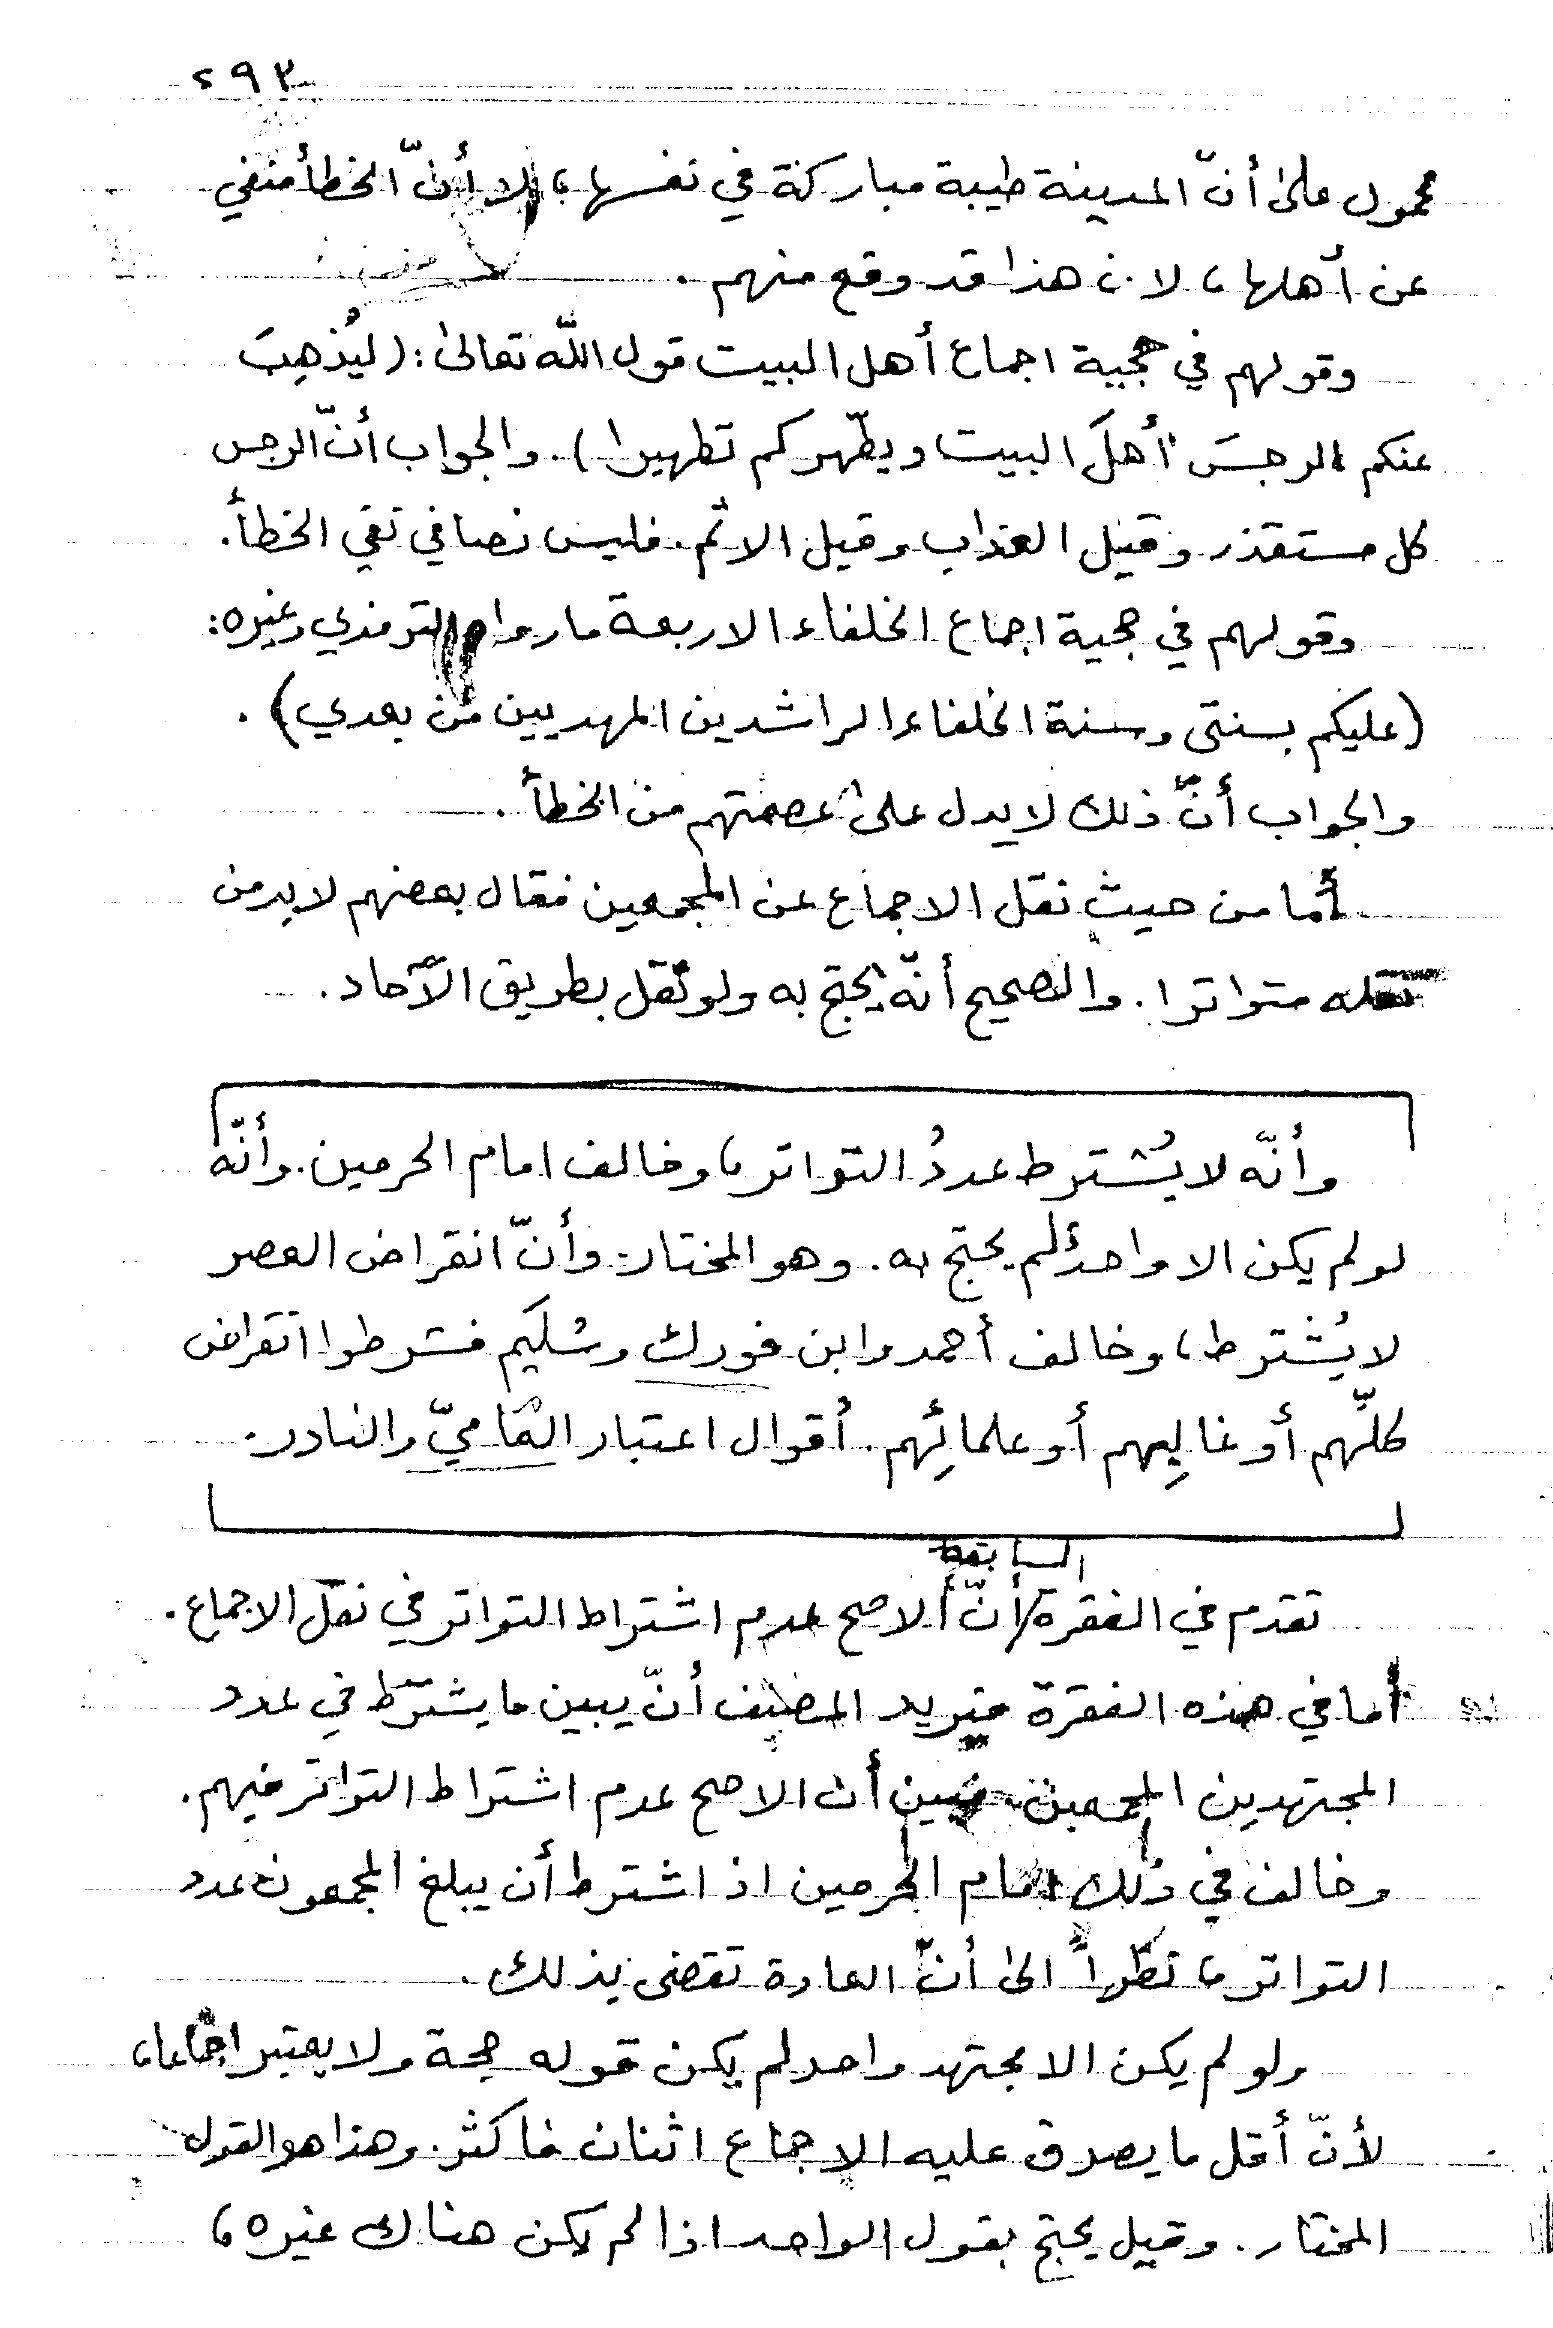 ٢٩٣
محمول على أنّ المدينة طيبة مباركة في نفسها، لا أنّ الخطأ منفي
عن أهلها، لان هذا قد وقع منهم.
وقولهم في حجية اجماع أهل البيت قول اللّه تعالى: (ليُذهِبَ
عنكم الرجسَ أهلَ البيت ويطّهركم تطهيرا). والجواب أنّ الرجس
كل مستقذر وقيل العذاب وقيل الاثم. فليس نصا في نفي الخطأ.
وقولهم في حجية اجماع الخلفاء الاربعة ما رواه الترمذي وغيره:
(عليكم بسنتي وسنة الخلفاء الراشدين المهديين من بعدي).
والجواب أنّ ذلك لا يدل على عصمتهم من الخطأ.
أما من حيث نقل الاجماع عن المجمعين فقال بعضهم لا بد من
نقله متواترا. والصحيح أنّه يحتج به ولو نقل بطريق الآحاد.
وأنّه لا يُشترط عددُ التواتر، وخالف امام الحرمين. وأنّه
لو لم يكن الا واحدٌ لم يحتج به. وهو المختار. وأنّ انقراض العصر
لا يُشترط، وخالف أحمد وابن فورك وسُليم فشرطوا انقراض
كلِّهم أو غالِبِهم أو علمائِهم. أقوال اعتبار العاميّ والنادر.
السابقة
تقدم في الفقرة أنّ الاصح عدم اشتراط التواتر في نقل الاجماع.
أما في هذه الفقرة فيريد المصنف أنّ يبين ما يشترط في عدد
المجتهدين المجمعين فبين أن الاصح عدم اشتراط التواتر فيهم.
وخالف في ذلك امام الحرمين اذ اشترط أن يبلغ المجمعون عدد
التواتر، نظراً الى أنّ العادة تقضى بذلك.
ولو لم يكن الا مجتهد واحد لم يكن قوله حجة ولا يعتبر اجماعا،
لأنّ أقل ما يصدق عليه الاجماع اثنان فاكثر. وهذا هو القول
المختار. وقيل يحتج بقول الواحد اذا لم يكن هناك غيره،